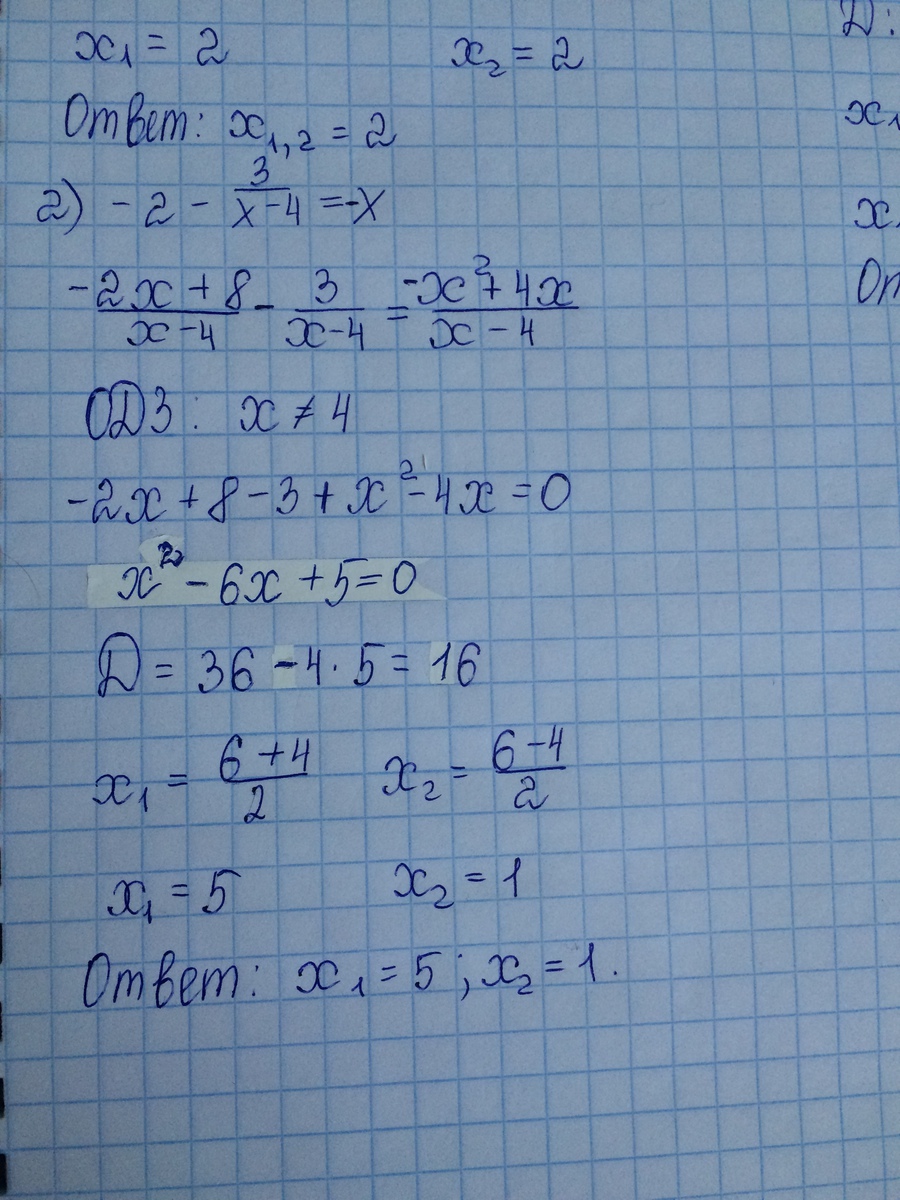 x₁ = 2 x₂ = 2
Ответ: x₁,₂ = 2
2) -2 - 3/(x-4) = -x
(-2x + 8)/(x-4) - 3/(x-4) = (-x² + 4x)/(x-4)
ОДЗ: x ≠ 4
-2x + 8 - 3 + x² - 4x = 0
x² - 6x + 5 = 0
Д = 36 - 4 · 5 = 16
x₁ = (6+4)/2 x₂ = (6-4)/2
x₁ = 5 x₂ = 1
Ответ: x₁ = 5 ; x₂ = 1.
Д:
x₁
x
От